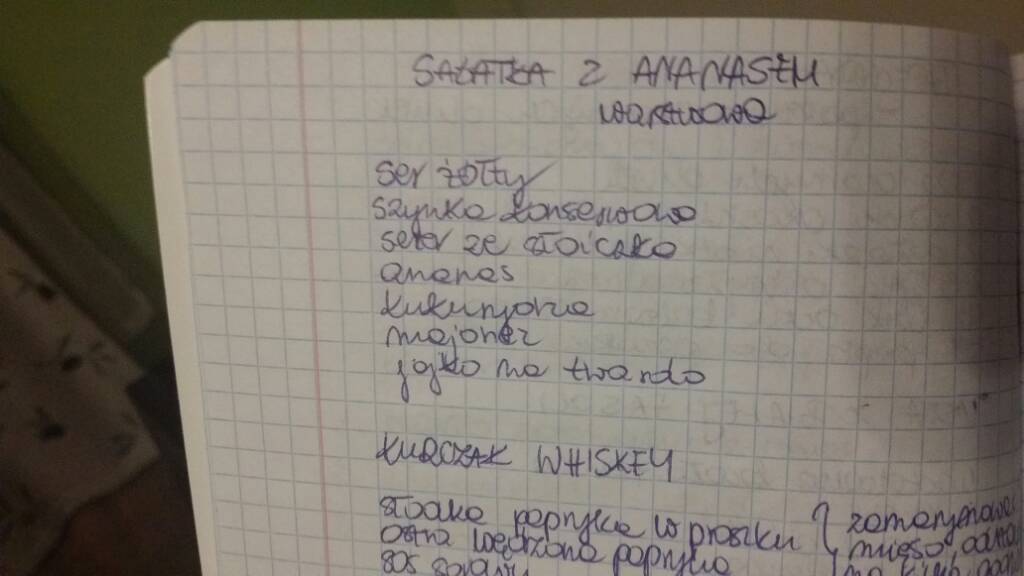 SAŁATKA Z ANANASEM
warstwowa
ser żółty
szynka konserwowa
seler ze słoiczka
ananas
kukurydza
majonez
jajko na twardo
KURCZAK WHISKEY
słodka papryka w proszku } zamarynować
ostra wędzona papryka mięso, odsta
sos sojowy na kilka godzi